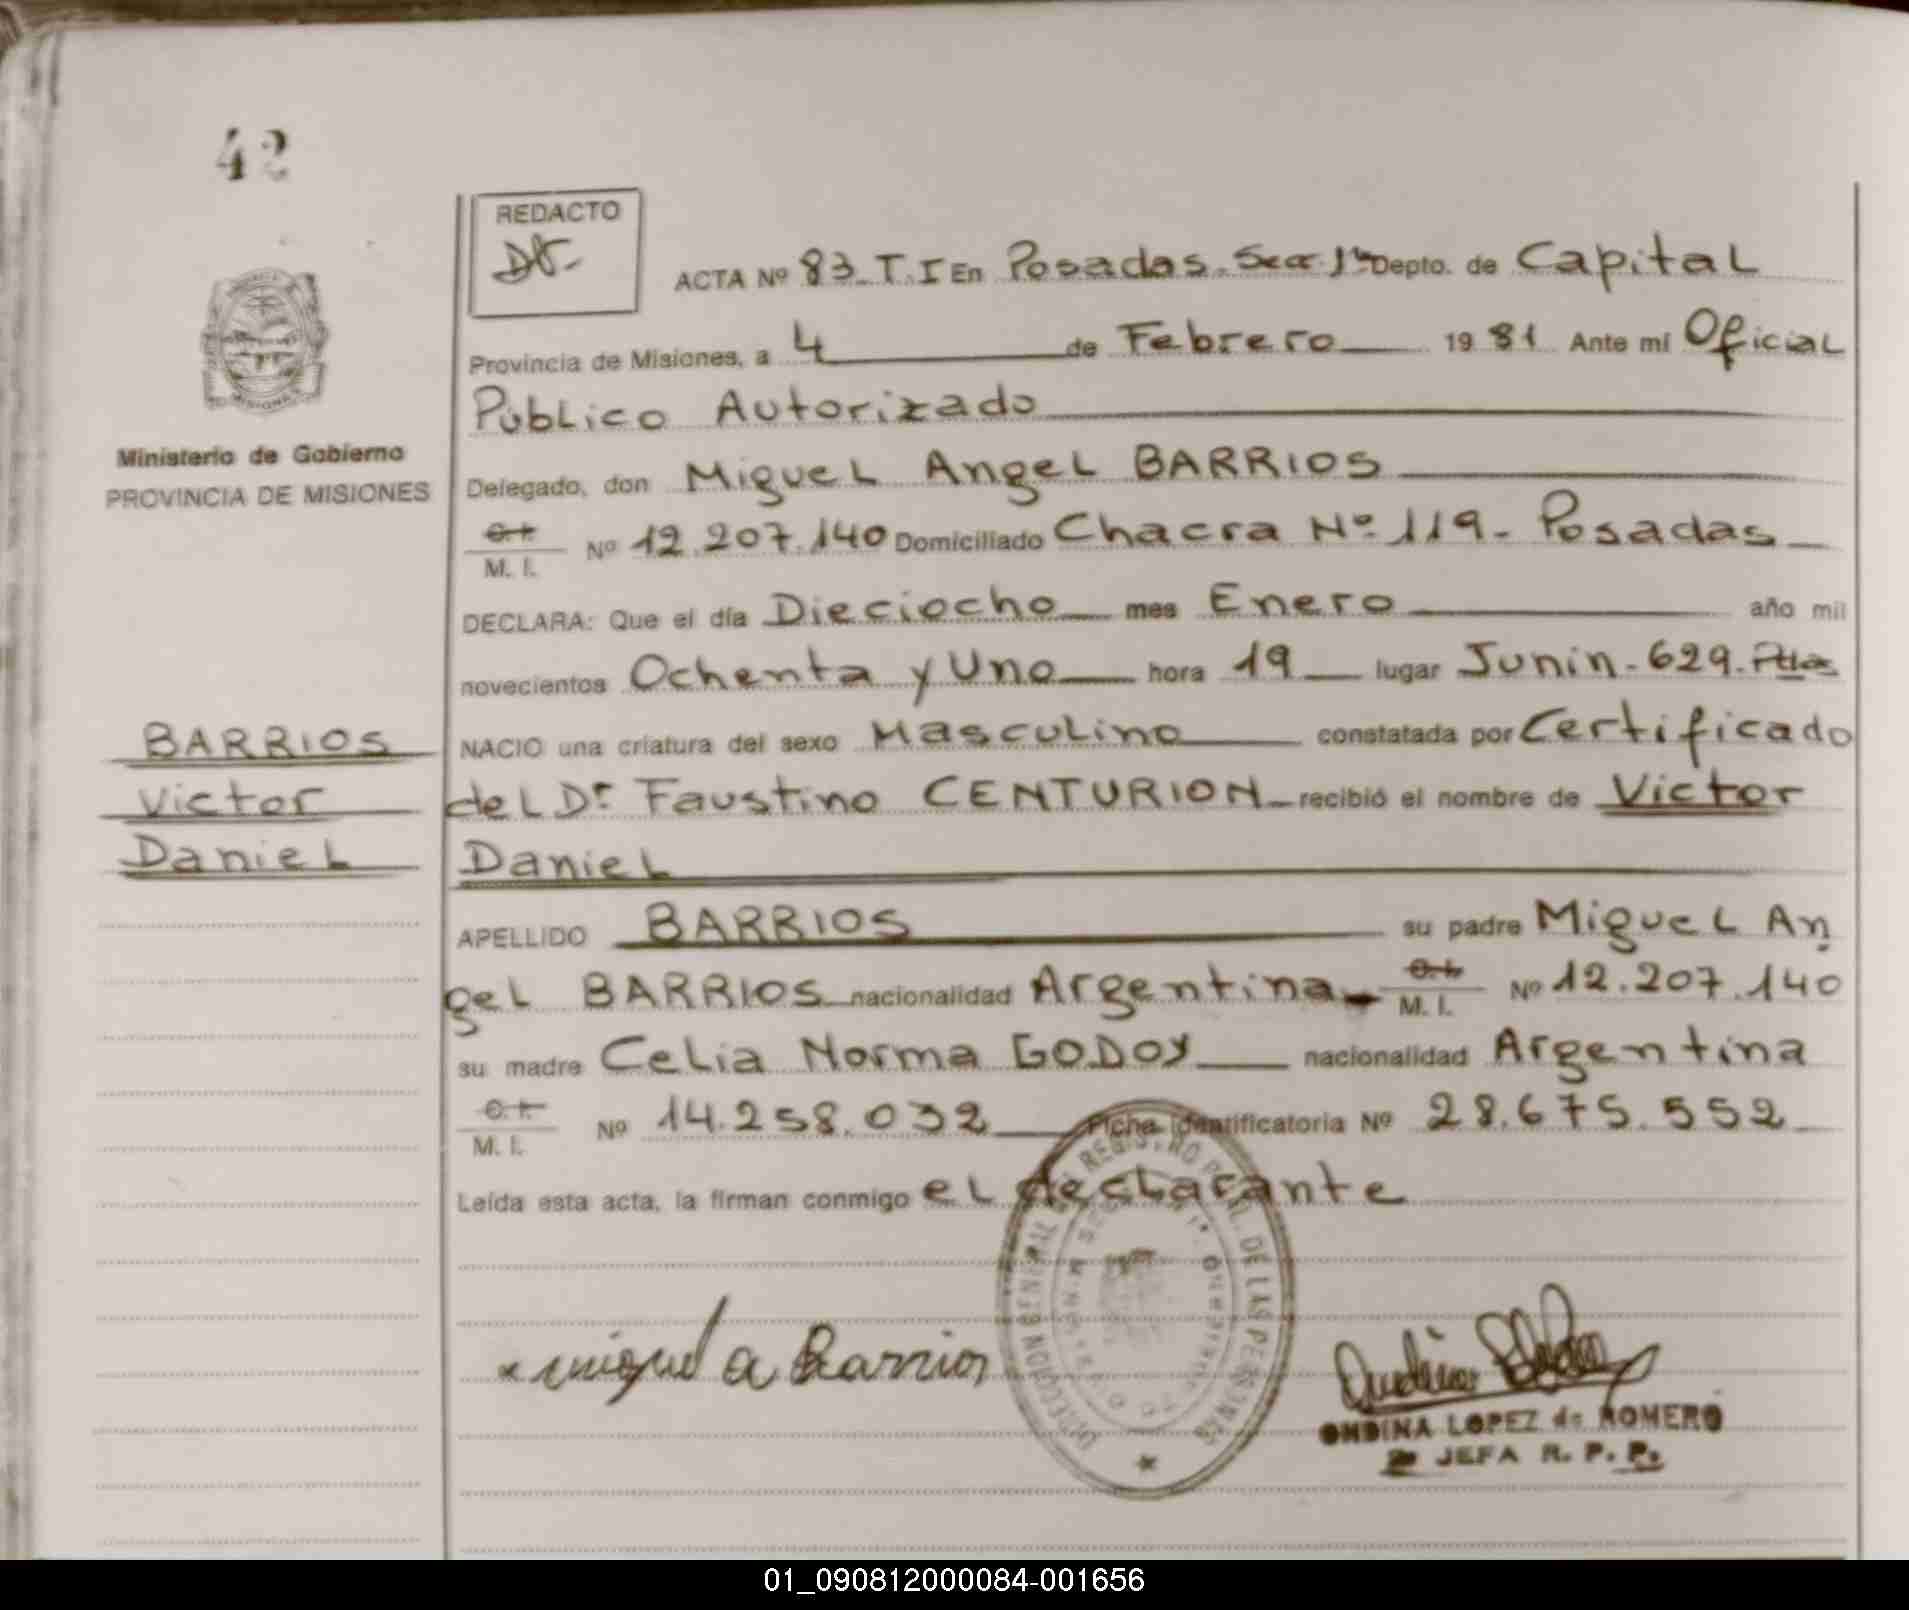 42
REDACTO
ACTA Nº 83 T.I En Posadas. Secc. 1ª Depto. de Capital
Provincia de Misiones, a 4 de Febrero 1981 Ante mí Oficial
Publico Autorizado
Delegado, don Miguel Angel BARRIOS
C.I.
M. I. Nº 12.207.140 Domiciliado Chacra Nº 119- Posadas
DECLARA: Que el día Dieciocho mes Enero año mil
novecientos Ochenta y Uno hora 19 lugar Junin-629-Pdas
NACIO una criatura del sexo Masculino constatada por Certificado
del Dr. Faustino CENTURION recibió el nombre de Victor
Daniel
APELLIDO BARRIOS su padre Miguel An
gel BARRIOS nacionalidad Argentina C.I.
M. I. Nº 12.207.140
su madre Celia Norma GODOY nacionalidad Argentina
C.I.
M. I. Nº 14.258.032 Ficha Identificatoria Nº 28.675.552
Leída esta acta, la firman conmigo el declarante
Ministerio de Gobierno
PROVINCIA DE MISIONES
BARRIOS
Victor
Daniel
MISIONES
miguel a Barrios
DIRECCION GENERAL DEL REGISTRO PCIAL. DE LAS PERSONAS
ONDINA LOPEZ de ROMERO
JEFA R. P. P.
01_090812000084-001656